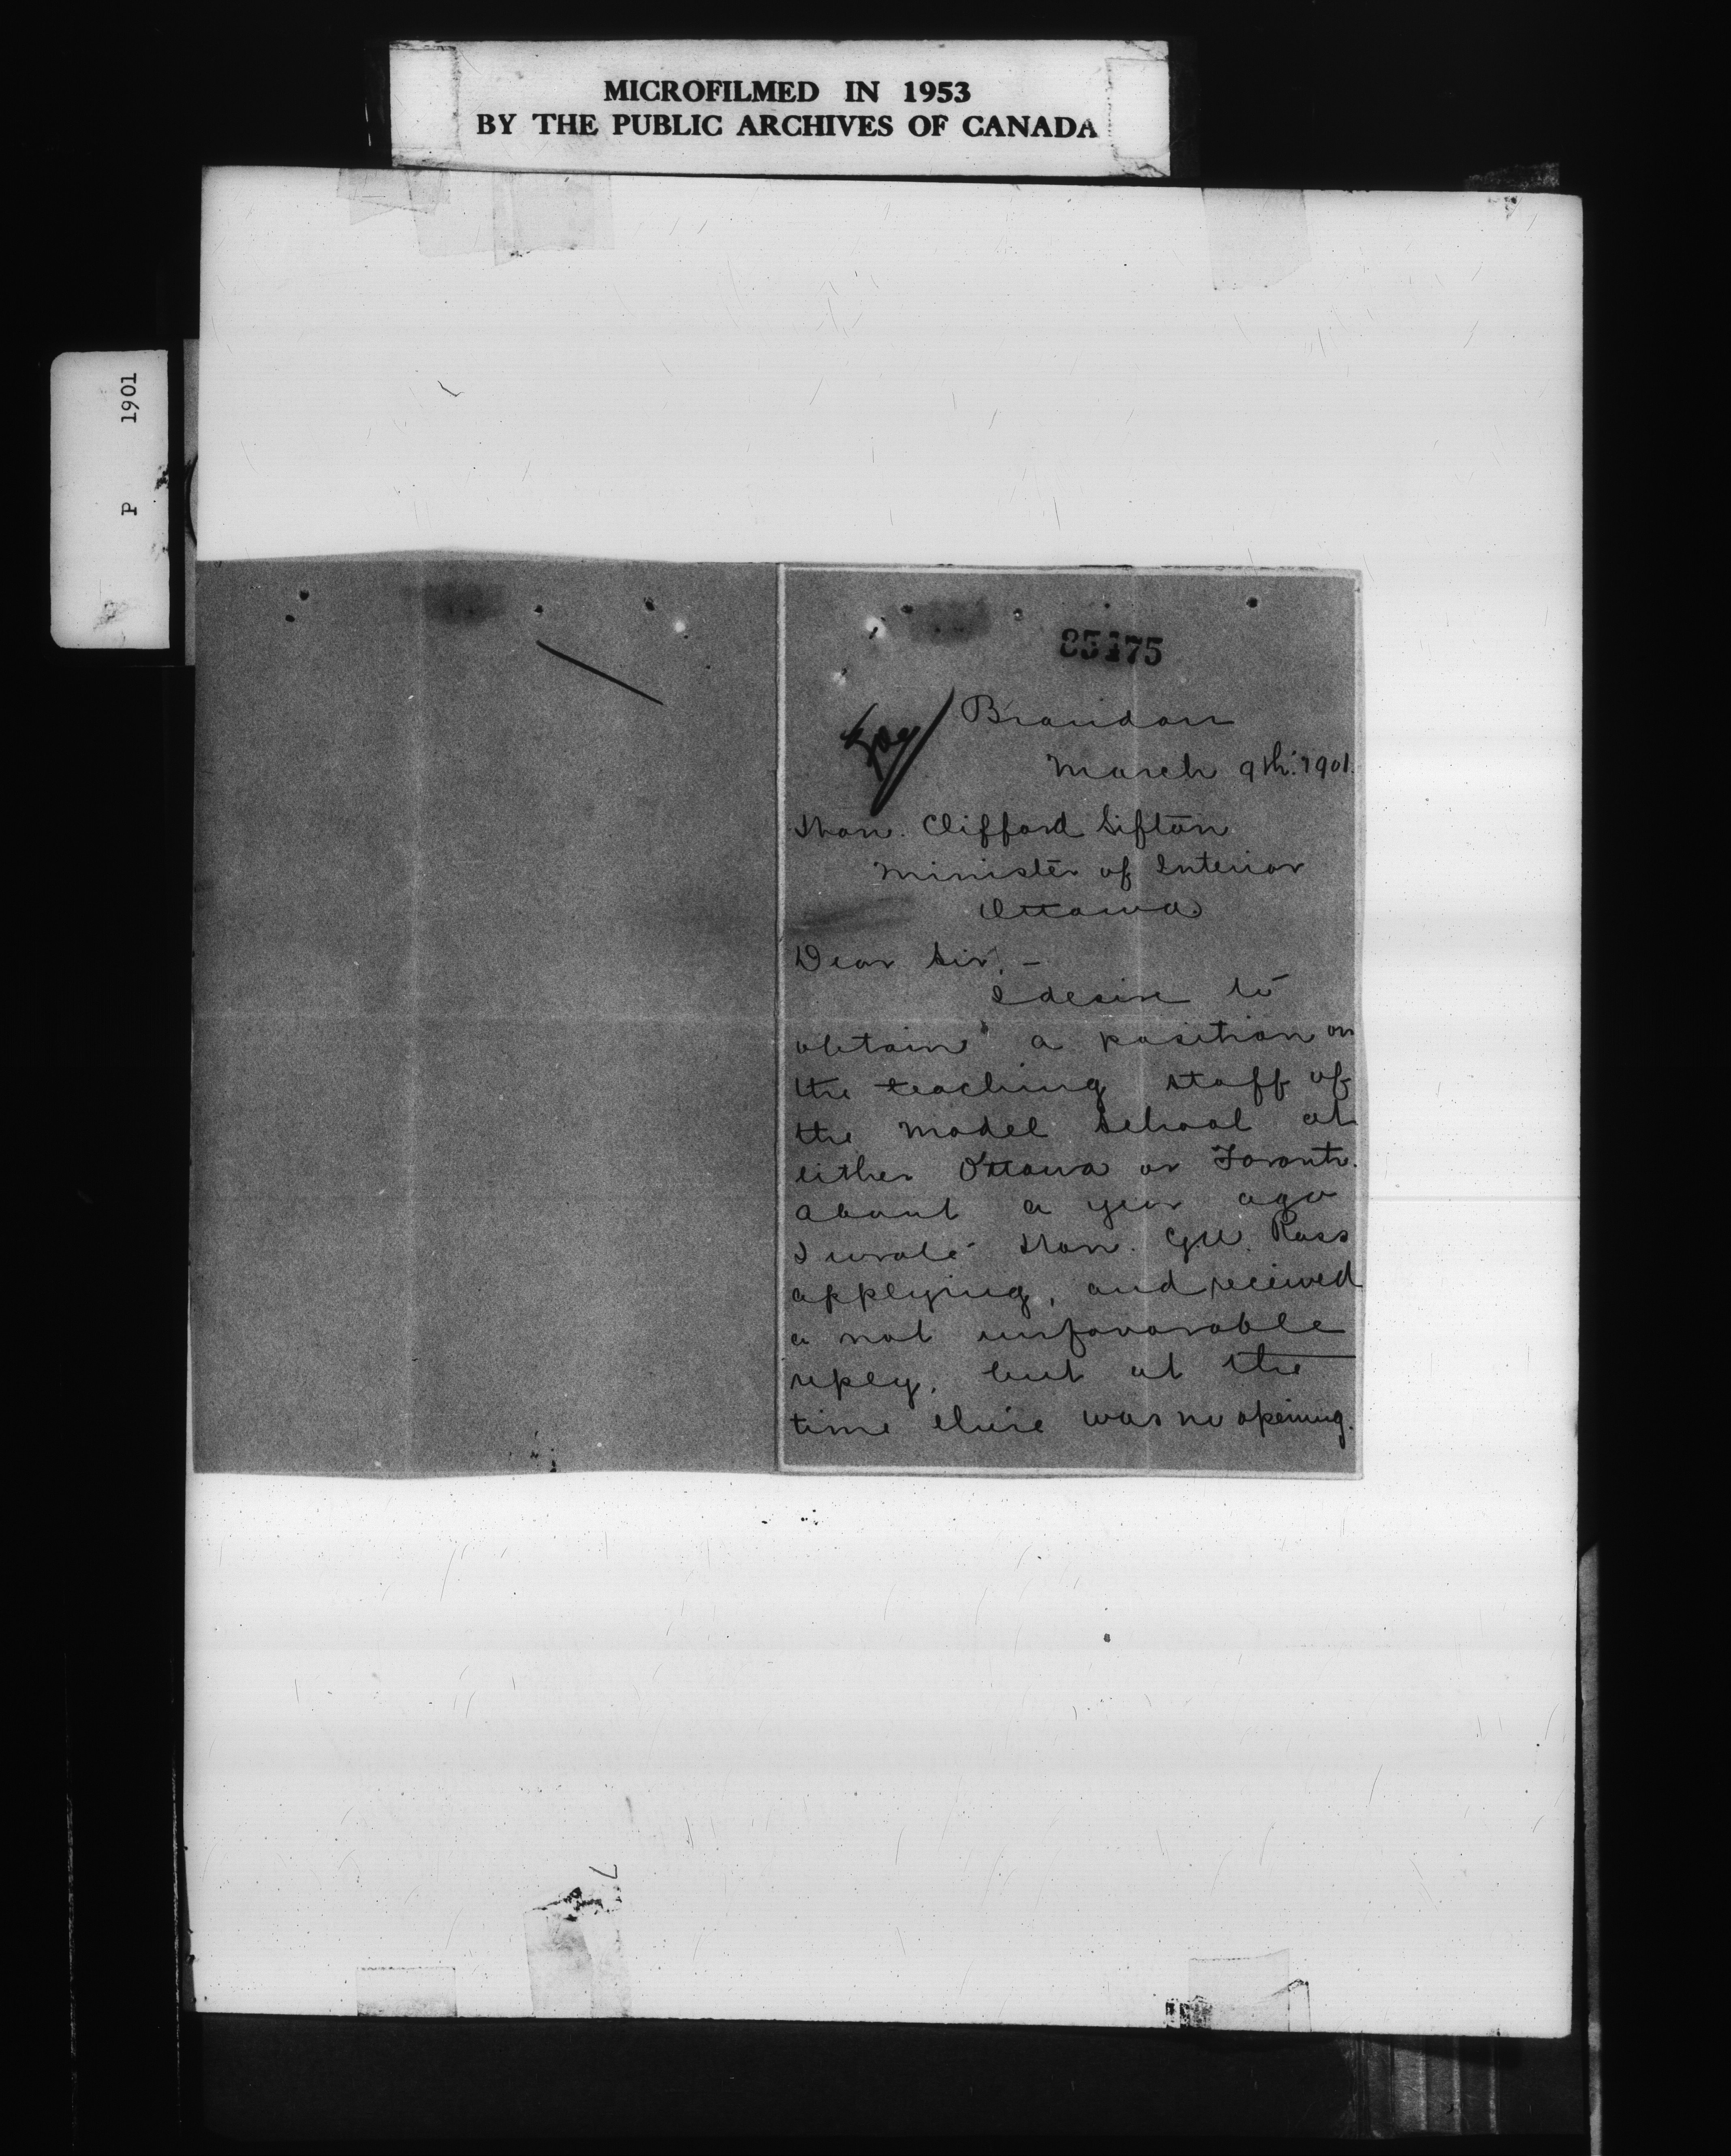 MICROFILMED IN 1953
BY THE PUBLIC ARCHIVES OF CANADA
P 1901
Brandon
March 9th. 1901.
Hon. Clifford Sifton
Minister of Interior
Ottawa
Dear Sir, -
I desire to
obtain a position on
the teaching staff of
the Model School at
either Ottawa or Toronto.
About a year ago
I wrote Hon. G.W. Ross
applying, and received
a not unfavorable
reply, but at the
time there was no opening.